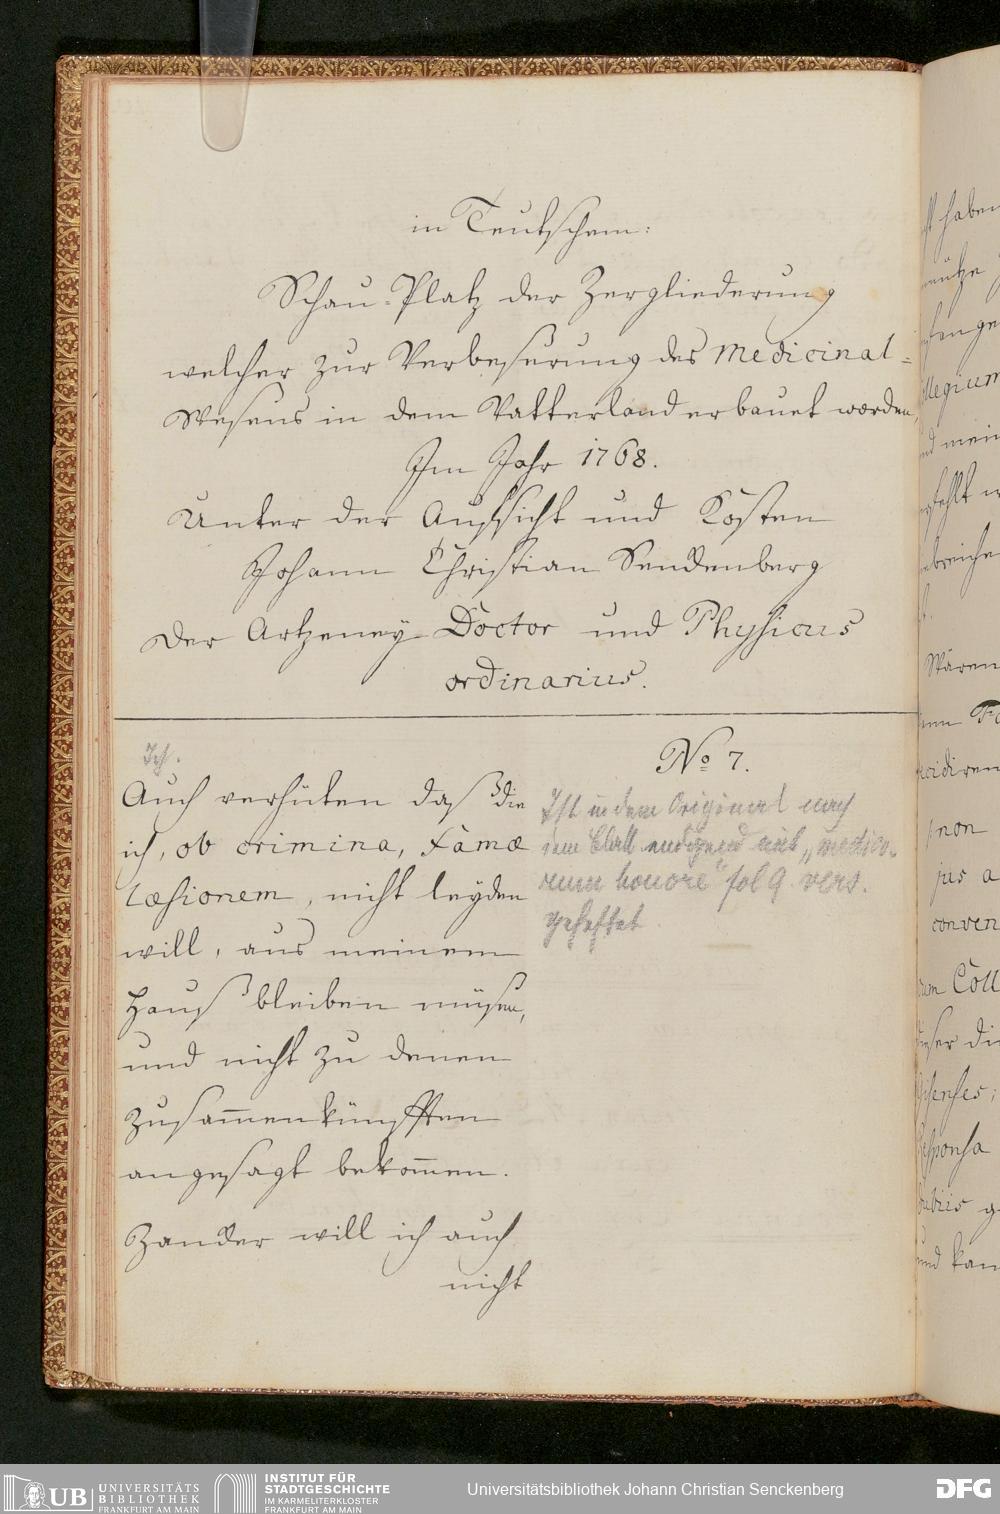 in Teutschem:
Schau-Platz der Zergliederung
welcher zur Verbeserung des Medicinal-
Wesens in dem Vatterland erbauet worden,
Im Jahr 1768.
Unter der Aufsicht und Kosten
Johann Christian Senckenberg
Der Artzeney Doctor und Physicus
ordinarius.
Ich.
Auch verhüten daß die
ich, ob crimina, Famæ
Læsionem, nicht leyden
will, aus meinem
Hauß bleiben müsen,
und nicht zu denen
Zusam̄enkünfften
angesagt bekom̄en.
Zander will ich auch
nicht
No 7.
Ist in dem Original nach
dem Blatt endigend mit „medico-
rum honore" fol 9 vers.
geheftet
haben
ütze
llegium
mein
fehlt
Wären
non
jus a
conven
um Coll
responsa
und kan
UB UNIVERSITÄTS
BIBLIOTHEK
FRANKFURT AM MAIN
INSTITUT FÜR
STADTGESCHICHTE
IM KARMELITERKLOSTER
FRANKFURT AM MAIN
Universitätsbibliothek Johann Christian Senckenberg
DFG